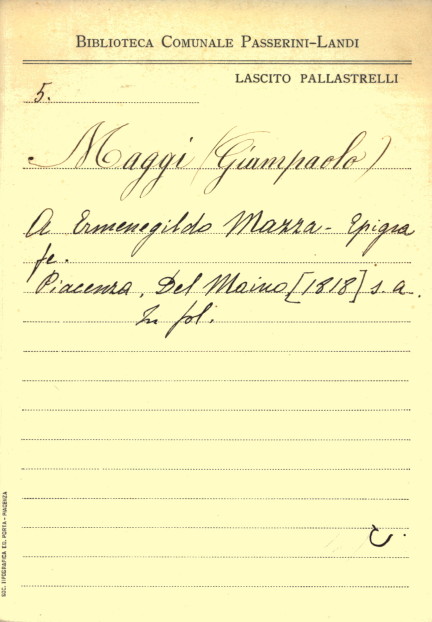 BIBLIOTECA COMUNALE PASSERINI-LANDI
LASCITO PALLASTRELLI
5.
Maggi (Giampaolo)
A Ermenegildo Mazza - Epigra
fe.
Piacenza, Del Maino [1818] s. a.
In fol.
C.
SOC. TIPOGRAFICA ED. PORTA - PIACENZA